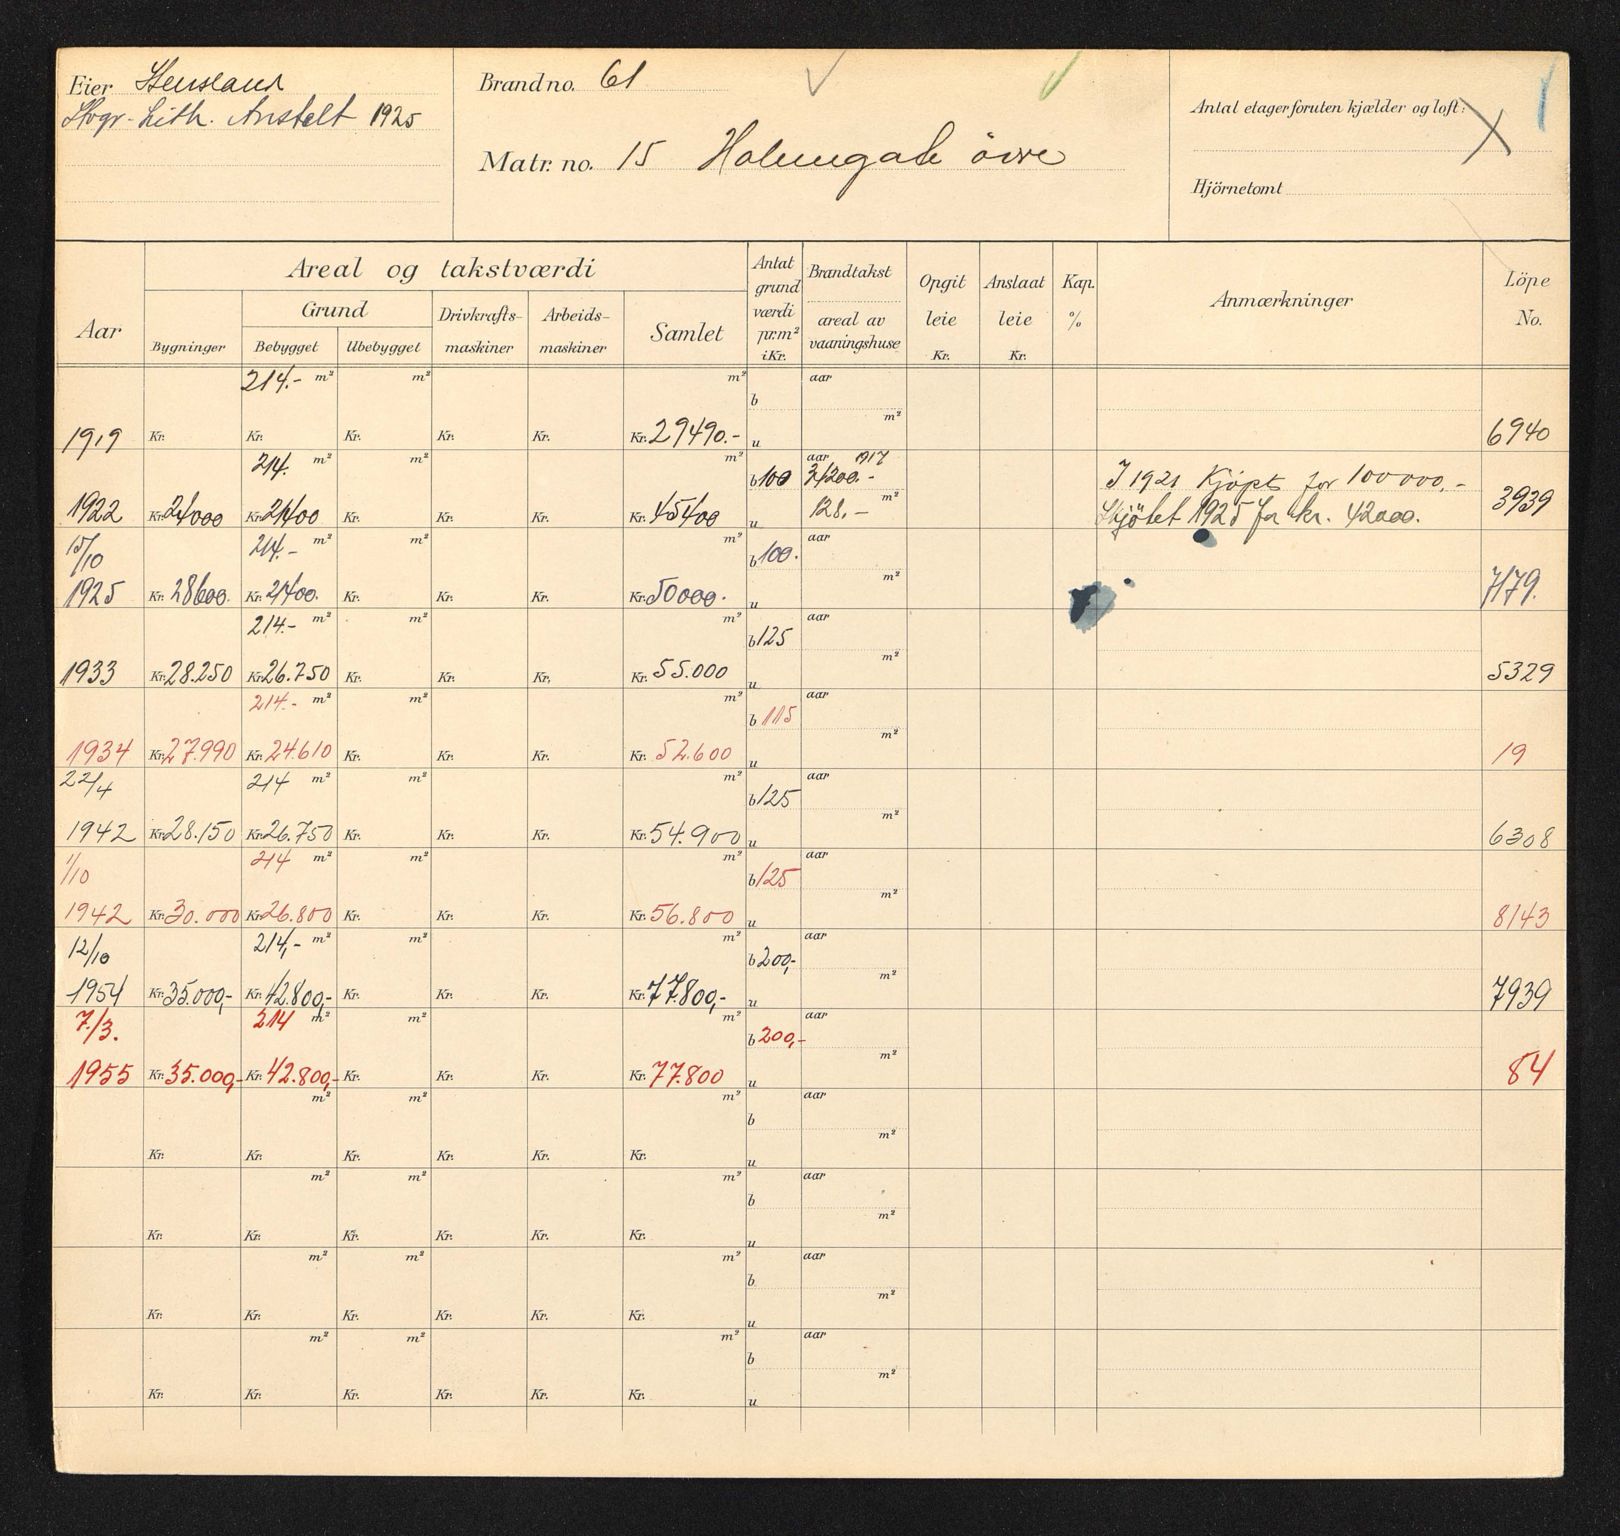 Eier Stensland
Stvgr. Lith. Anstalt 1925
Brandno. 61
Matr. no. 15 Holmegate övre
Antal etager foruten kjælder og loft:
Hjörnetomt
Aar
Areal og takstværdi
Bygninger
Grund
Bebygget Ubebygget
Drivkrafts-
maskiner
Arbeids-
maskiner
Samlet
Antat
grund
værdi
pr. m²
i Kr.
Brandtakst
areal av
vaaningshuse
Opgit
leie
Kr.
Anslaat
leie
Kr.
Kap.
%
Anmærkninger
Löpe
No.
214.- m² m² m² aar
b
m²
1919 Kr. Kr. Kr. Kr. Kr. Kr. 29490.- u 6940
214. m² m² m² aar 1917
b 100 31200.- I 1921 Kjöpt for 100000,-
m²
1922 Kr. 24000 Kr. 21400 Kr. Kr. Kr. Kr. 45400 u 128,- Skjötet 1925 for kr. 42000. 3939
15/10 214.- m² m² m² aar
b 100.
m²
1925 Kr. 28600. Kr. 21400. Kr. Kr. Kr. Kr. 50000. u 7179.
214.- m² m² m² aar
b 125
m²
1933 Kr. 28.250 Kr. 26.750 Kr. Kr. Kr. Kr. 55.000 u 5329
214.- m² m² m² aar
b 115
m²
1934 Kr. 27.990 Kr. 24.610 Kr. Kr. Kr. Kr. 52.600 u 19
22/4 214 m² m² m² aar
b 125
m²
1942 Kr. 28.150 Kr. 26.750 Kr. Kr. Kr. Kr. 54.900 u 6308
1/10 214 m² m² m² aar
b 125
m²
1942 Kr. 30.000 Kr. 26.800 Kr. Kr. Kr. Kr. 56.800 u 8143
12/10 214,- m² m² m² aar
b 200,-
m²
1954 Kr. 35.000,- Kr. 42.800,- Kr. Kr. Kr. Kr. 77.800,- u 7939
7./3. 214 m² m² m² aar
b 200,-
m²
1955 Kr. 35.000,- Kr. 42.800,- Kr. Kr. Kr. Kr. 77.800 u 84
m² m² m² aar
b
m²
Kr. Kr. Kr. Kr. Kr. Kr. u
m² m² m² aar
b
m²
Kr. Kr. Kr. Kr. Kr. Kr. u
m² m² m² aar
b
m²
Kr. Kr. Kr. Kr. Kr. Kr. u
m² m² m² aar
b
m²
Kr. Kr. Kr. Kr. Kr. Kr. u